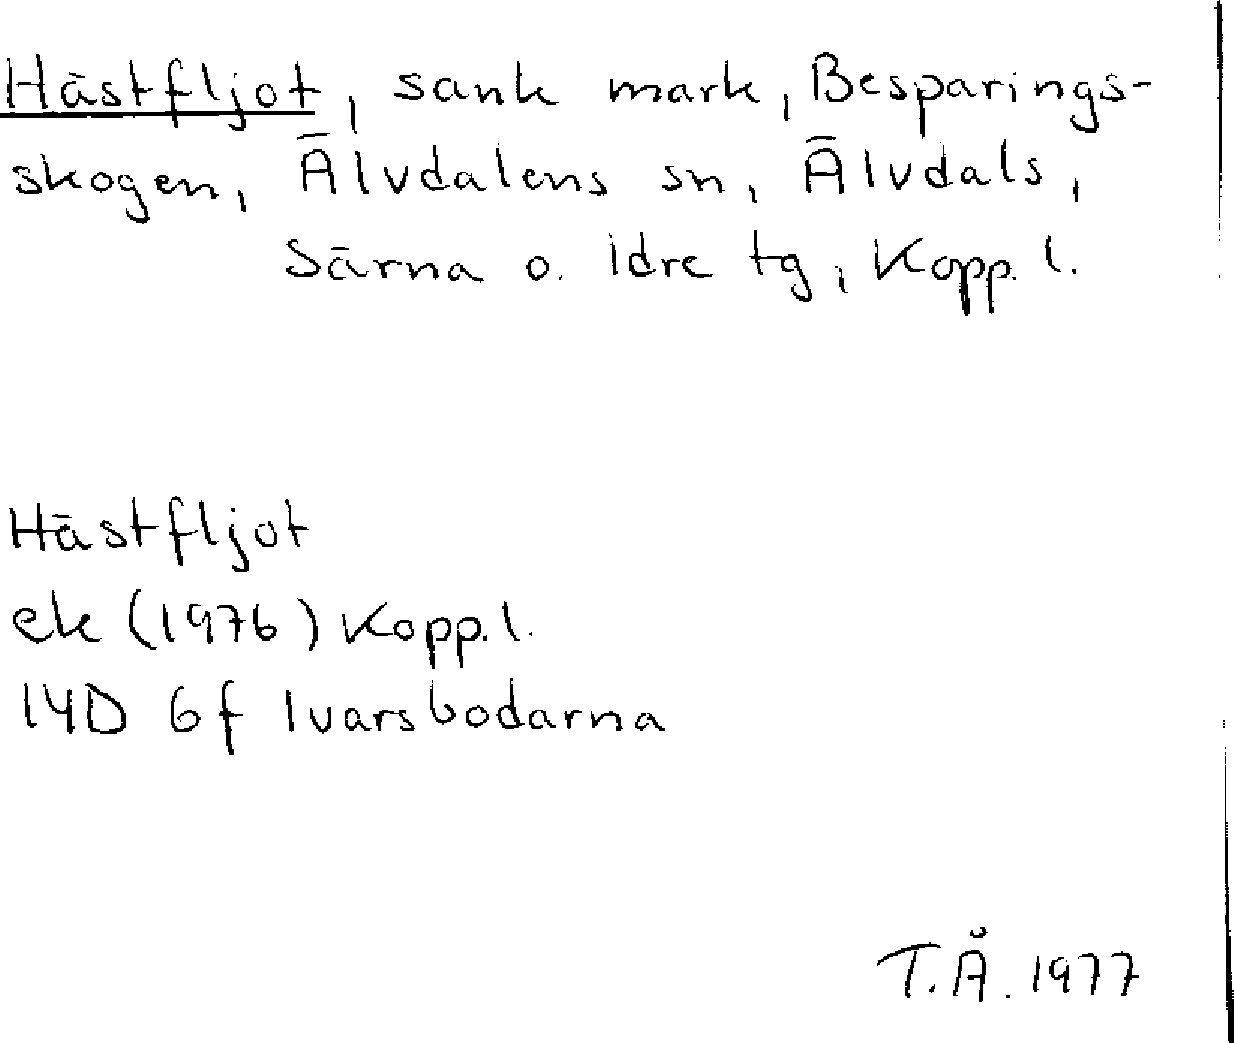 Hästfljot, sank mark, Besparings-
skogen, Älvdalens sn, Älvdals,
Särna o. Idre tg, Kopp. l.
Hästfljot
ek (1976) Kopp. l.
14D 6f Ivarsbodarna
T.Å. 1977